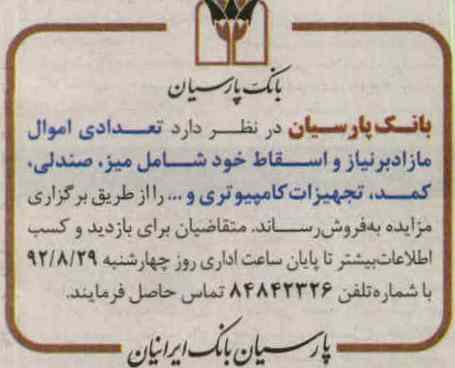 بانک پارسیان
بانک پارسیان در نظر دارد تعدادی اموال
مازادبرنیاز و اسقاط خود شامل میز، صندلی،
کمد، تجهیزات کامپیوتری و ... را از طریق برگزاری
مزایده به‌فروش رساند. متقاضیان برای بازدید و کسب
اطلاعات‌بیشتر تا پایان ساعت اداری روز چهارشنبه ۹۲/۸/۲۹
با شماره‌تلفن ۸۴۸۴۲۳۲۶ تماس حاصل فرمایند.
پارسیان بانک ایرانیان